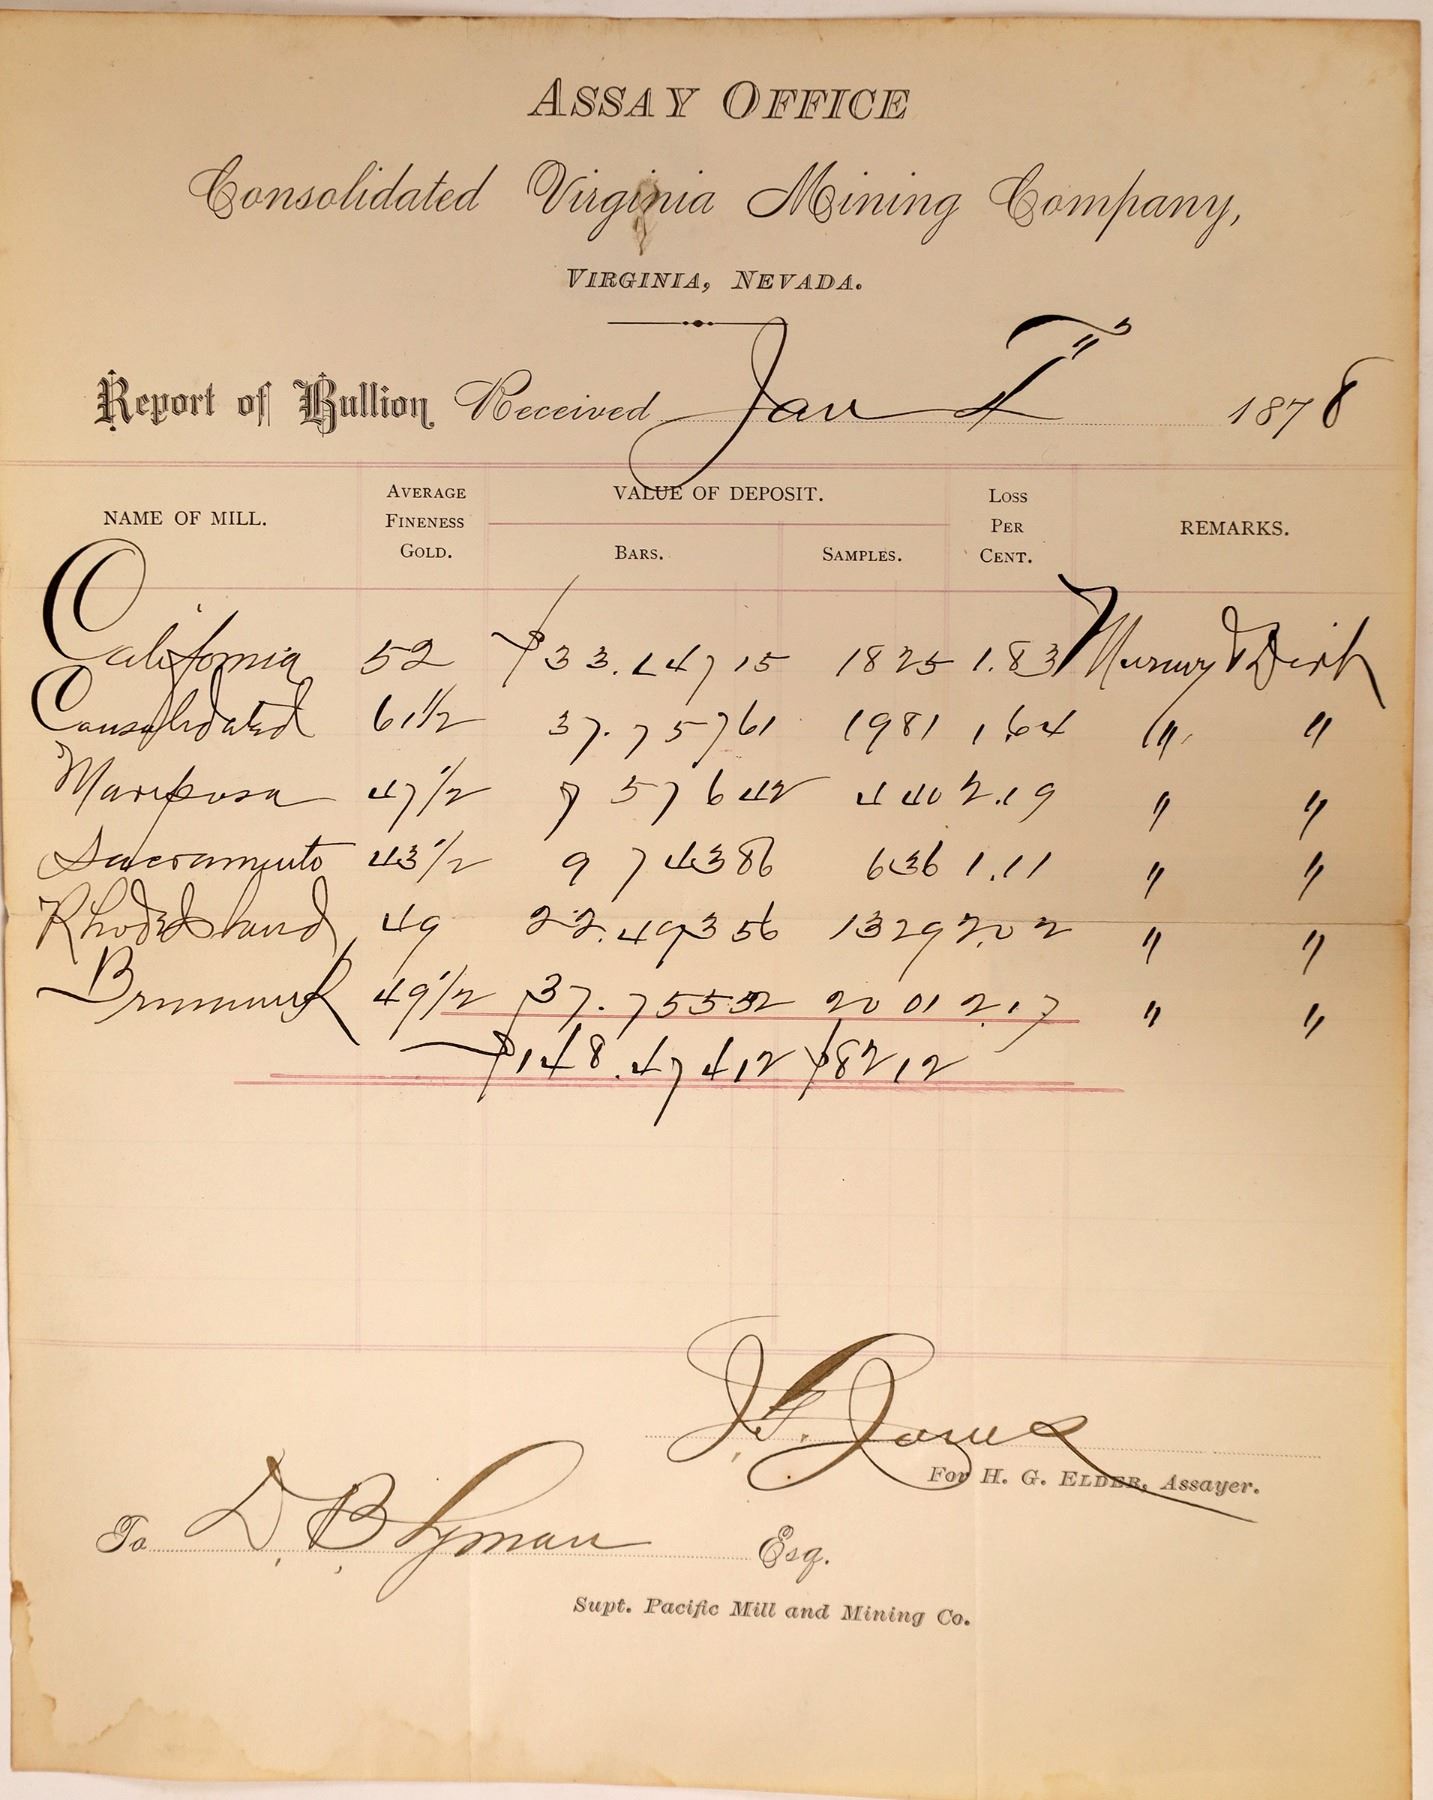 ASSAY OFFICE
Consolidated Virginia Mining Company,
VIRGINIA, NEVADA.
Report of Bullion Received Jan 4" 1878
NAME OF MILL. AVERAGE FINENESS GOLD. VALUE OF DEPOSIT. BARS. SAMPLES. LOSS PER CENT. REMARKS.
California 52 $33.147 15 18 25 1.83 Mercury & Dirt
Consolidated 61 1/2 37.757 61 19 81 1.64 " "
Mariposa 47 1/2 7 576 42 4 40 2.19 " "
Sacramento 43 1/2 9 743 86 6 36 1.11 " "
Rhode Island 49 22.493 56 13 29 2.02 " "
Brunswick 49 1/2 37.755 52 20 01 2.17 " "
$148.474 12 $82 12
Jones
For H. G. ELDER, Assayer.
To D. B. Lyman Esq.
Supt. Pacific Mill and Mining Co.